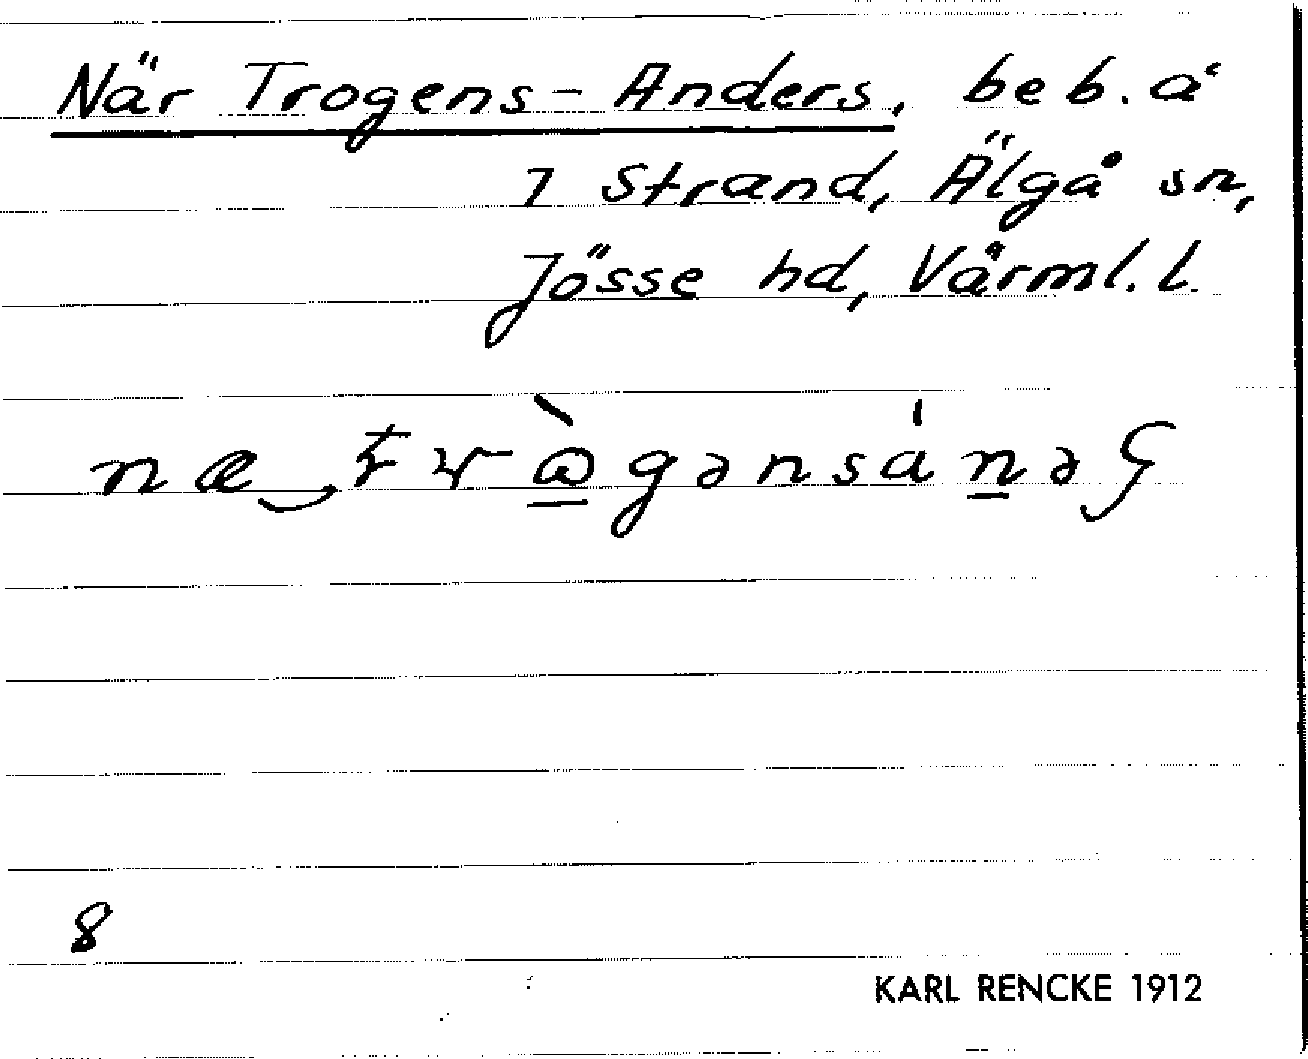 När Trogens-Anders, beb. å
1 Strand, Älgå sn,
Jösse hd, Värml. l.
8
KARL RENCKE 1912